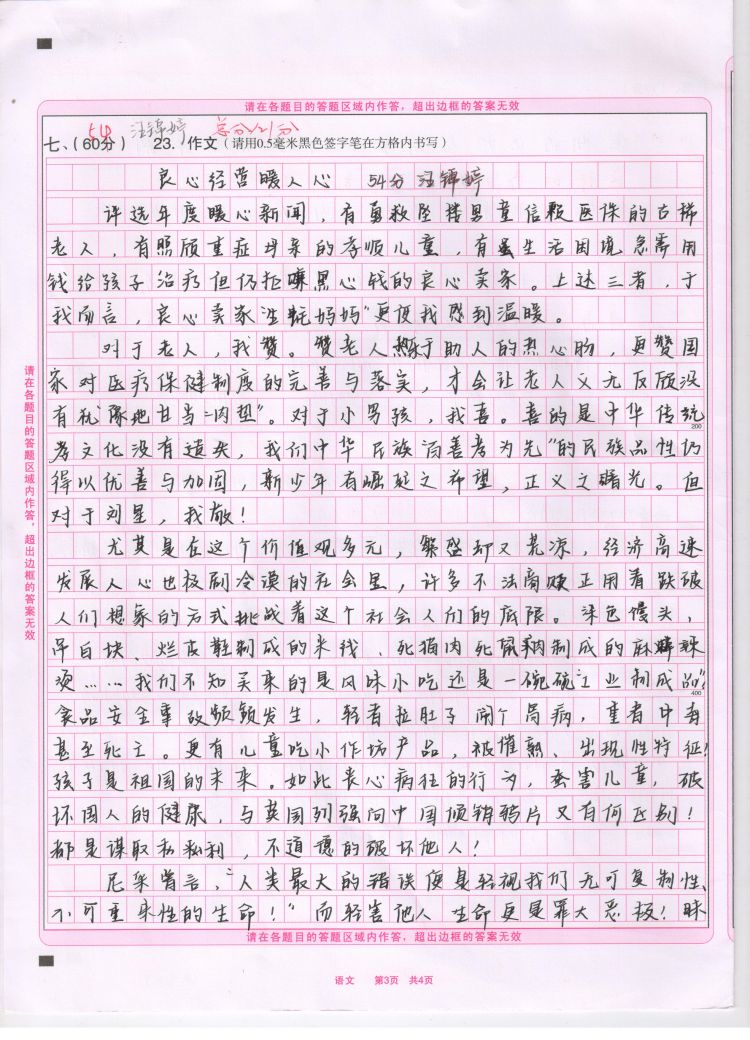 请在各题目的答题区域内作答，超出边框的答案无效
54 汪锦婷 总分121分
七、（60分） 23. 作文（请用0.5毫米黑色签字笔在方格内书写）
良心经营暖人心 54分 汪锦婷
评选年度暖心新闻，有勇救坠楼男童信赖医保的古稀
老人，有照顾重症母亲的孝顺儿童，有虽生活困境急需用
钱给孩子治疗但仍拒赚黑心钱的良心卖家。上述三者，于
我而言，良心卖家“生蚝妈妈”更使我感到温暖。
对于老人，我赞。赞老人热于助人的热心肠，更赞国
家对医疗保健制度的完善与落实，才会让老人义无反顾没
有犹豫地甘当“肉垫”。对于小男孩，我喜。喜的是中华传统
200
孝文化没有遗失，我们中华民族“百善孝为先”的民族品性仍
得以优善与加固，新少年有崛延之希望，正义之曙光。但
对于刘星，我敬！
尤其是在这个价值观多元，繁盛却又荒凉，经济高速
发展人心也极剧冷漠的社会里，许多不法商贩正用着跌破
人们想象的方式挑战着这个社会人们的底限。染色馒头，
吊白块、烂皮鞋制成的米线、死猫肉死鼠肉制成的麻辣
烫……我们不知买来的是风味小吃还是一碗碗“工业制成品”！
400
食品安全事故频频发生，轻者拉肚子闹个胃病，重者中毒
甚至死亡。更有儿童吃小作坊产品，被催熟、出现性特征！
孩子是祖国的未来。如此丧心病狂的行为，荼害儿童，破
坏国人的健康，与英国列强向中国倾销鸦片又有何区别！
都是谋取私利，不道德的破坏他人！
尼采曾言，“人类最大的错误便是轻视我们无可复制性、
不可重来性的生命！”而轻害他人生命更是罪大恶极！昧
请在各题目的答题区域内作答，超出边框的答案无效
请在各题目的答题区域内作答，超出边框的答案无效
语文 第3页 共4页